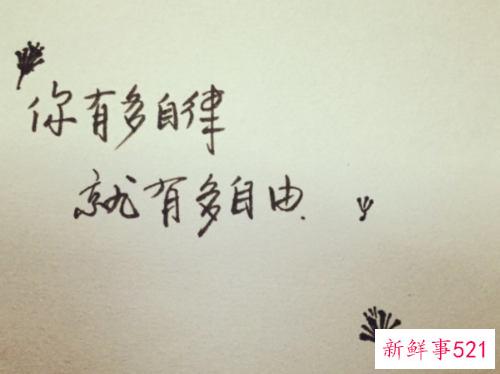 你有多自律
就有多自由.
新鲜事521